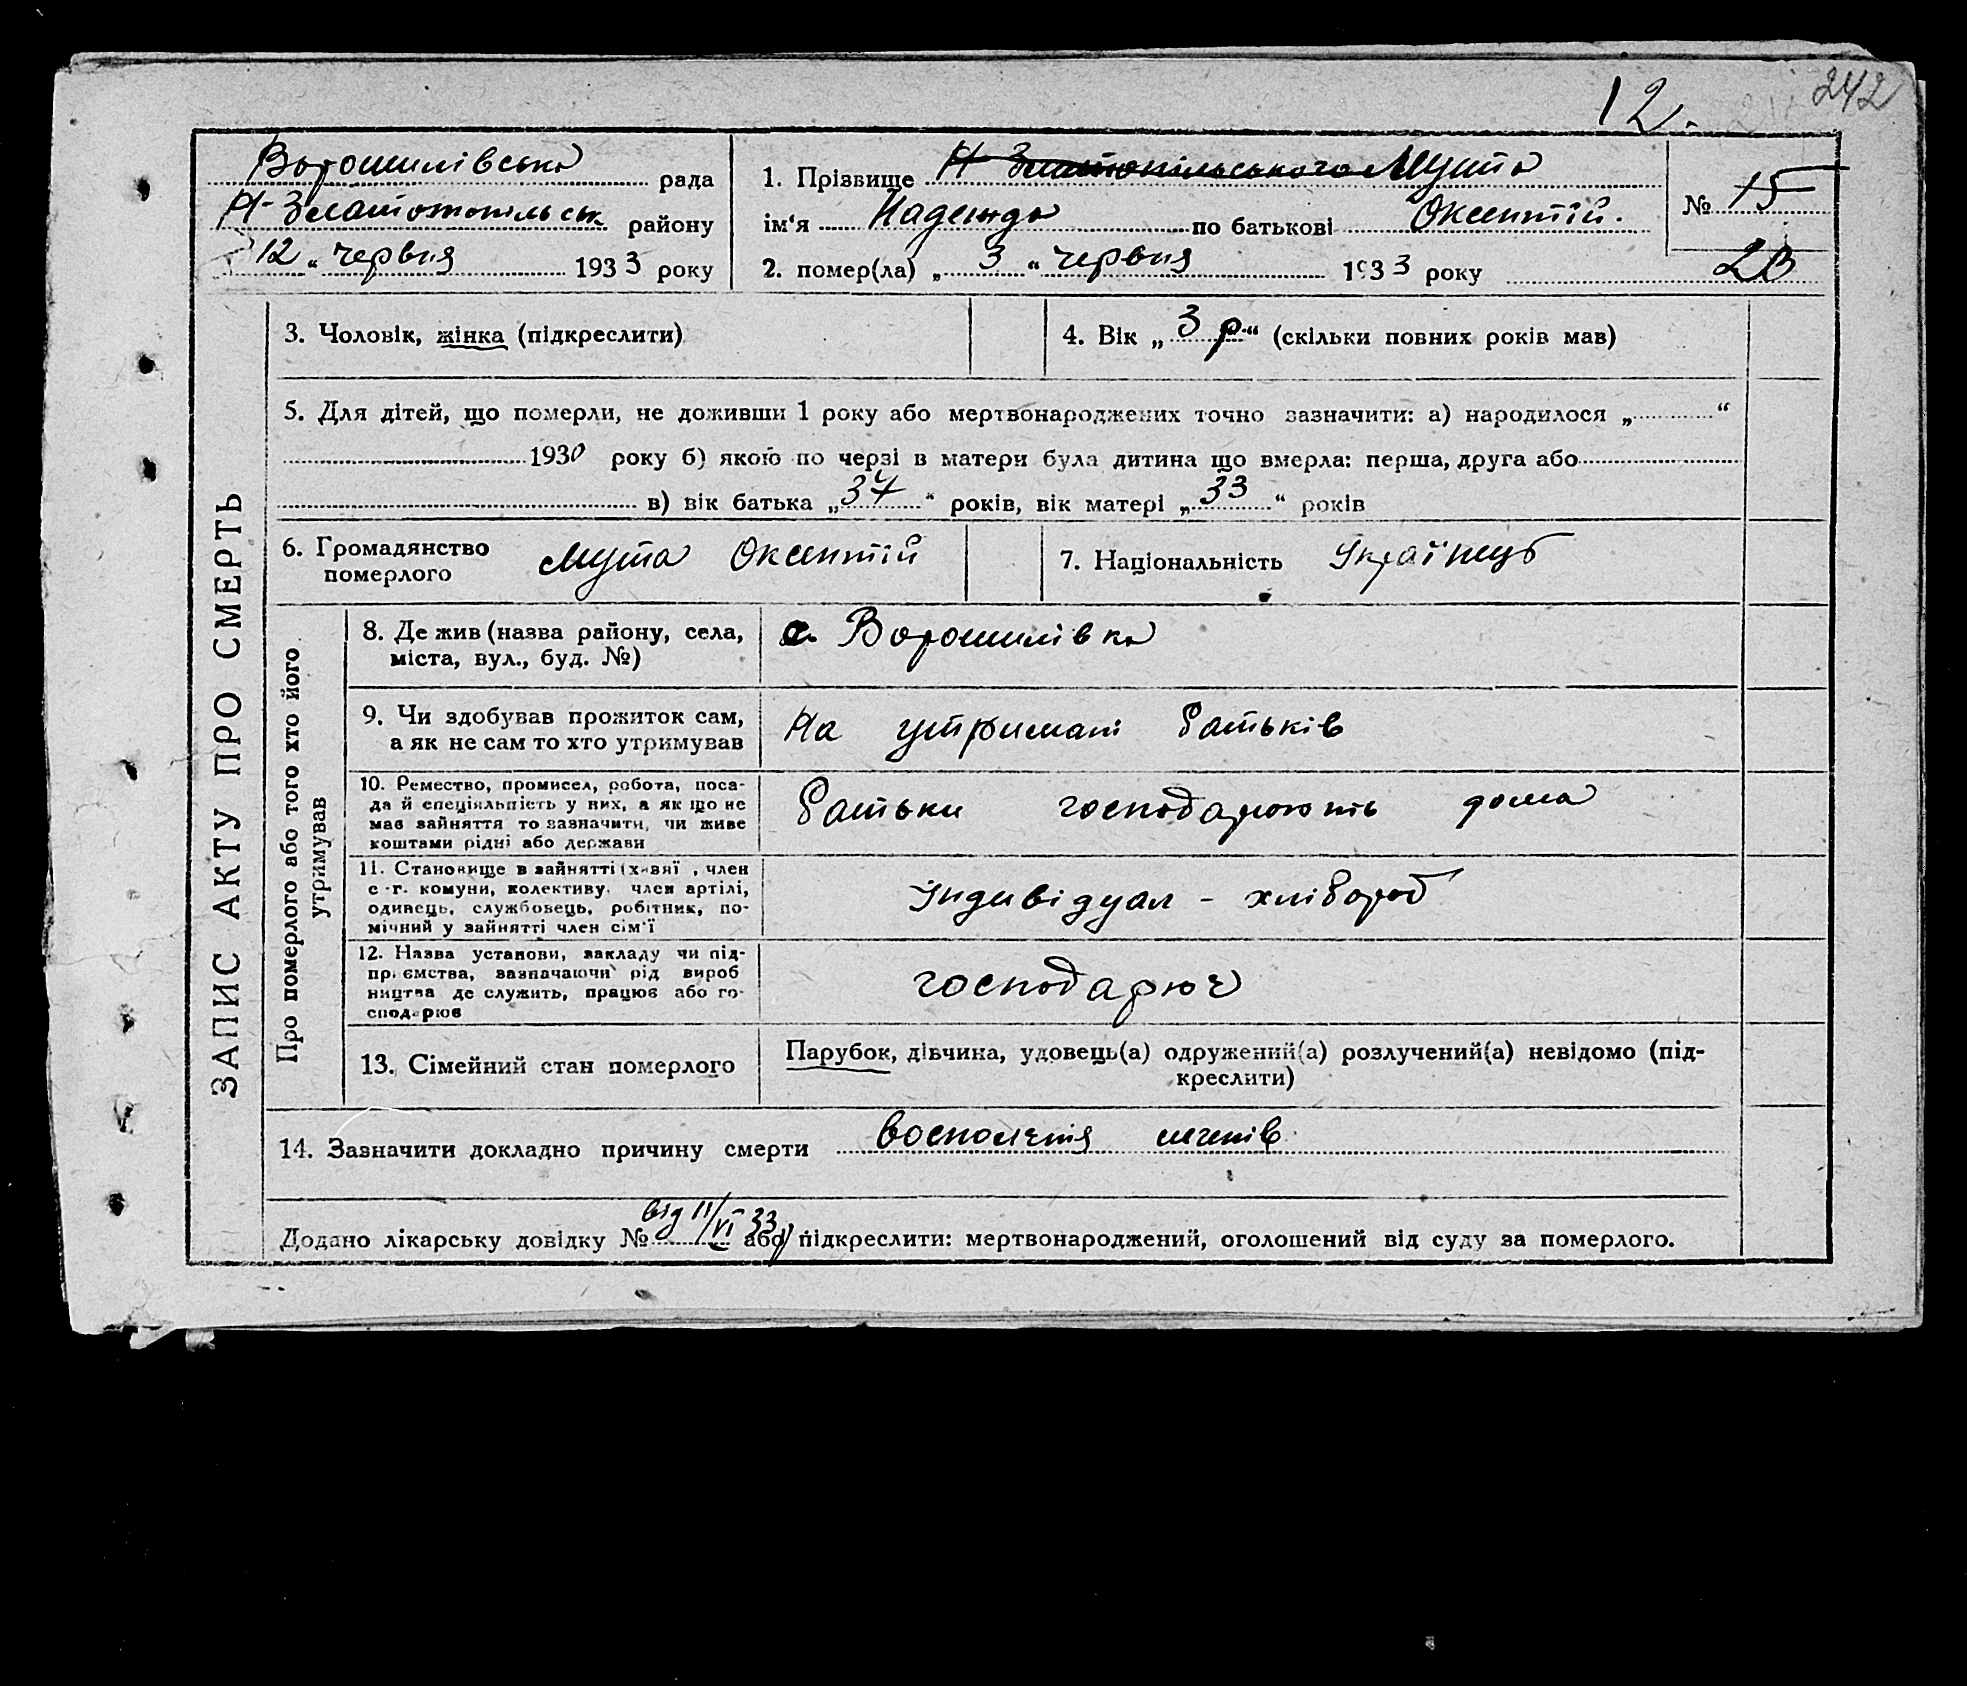 12. 242
Ворошилівська рада
Н-Златотопільськ району
12 " червня 1933 року
1. Прізвище Н-Златопільського Мута
ім'я Надежда по батькові Оксентій.
2. помер(ла) „ 3 " червня 1933 року
№ 15
2В
ЗАПИС АКТУ ПРО СМЕРТЬ
3. Чоловік, жінка (підкреслити)
4. Вік „ 3 р " (скільки повних років мав)
5. Для дітей, що померли, не доживши 1 року або мертвонароджених точно зазначити: а) народилося „ "
1930 року б) якою по черзі в матери була дитина що вмерла: перша, друга або
в) вік батька „ 37 " років, вік матері „ 33 " років
6. Громадянство
померлого
Мута Оксентій
7. Національність Українець
Про померлого або того хто його
утримував
8. Де жив (назва району, села,
міста, вул., буд. №)
с. Ворошилівка
9. Чи здобував прожиток сам,
а як не сам то хто утримував
На утримані батьків
10. Ремество, промисел, робота, поса-
да й спеціяльність у них, а як що не
мав зайняття то зазначити, чи живе
коштами рідні або держави
батьки господарюють дома
11. Становище в зайнятті (хазяї , член
с.-г. комуни, колективу, член артілі,
одинець, службовець, робітник, по-
мічний у зайнятті член сім'ї
Індивідуал - хлібороб
12. Назва установи, закладу чи під-
приємства, зазначаючи рід вироб
ництва де служить, працює або го-
сподарює
господарює
13. Сімейний стан померлого
Парубок, дівчина, удовець(а) одружений(а) розлучений(а) невідомо (під-
креслити)
14. Зазначити докладно причину смерти восполенія легенів
від 11/VI 33 р
Додано лікарську довідку № або підкреслити: мертвонароджений, оголошений від суду за померлого.